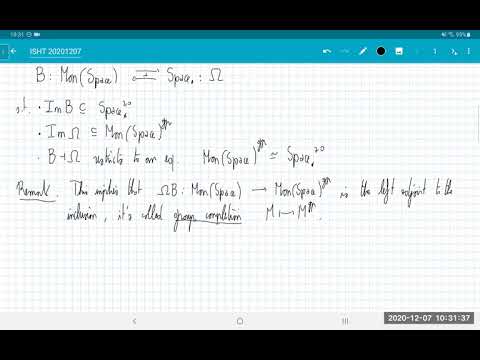 19:31
ISHT 20201207
B : Mon(Space) ⇄ Space. : Ω
s.t. • Im B ⊆ Space.^{≥0}
• Im Ω ⊆ Mon(Space)^{gr}
• B ⊣ Ω restricts to an eq. Mon(Space)^{gr} ≃ Space.^{≥0}
Remark. This implies that ΩB : Mon(Space) → Mon(Space)^{gr} is the left adjoint to the
inclusion, it's called group completion M ↦ M^{gr}.
2020-12-07 10:31:37